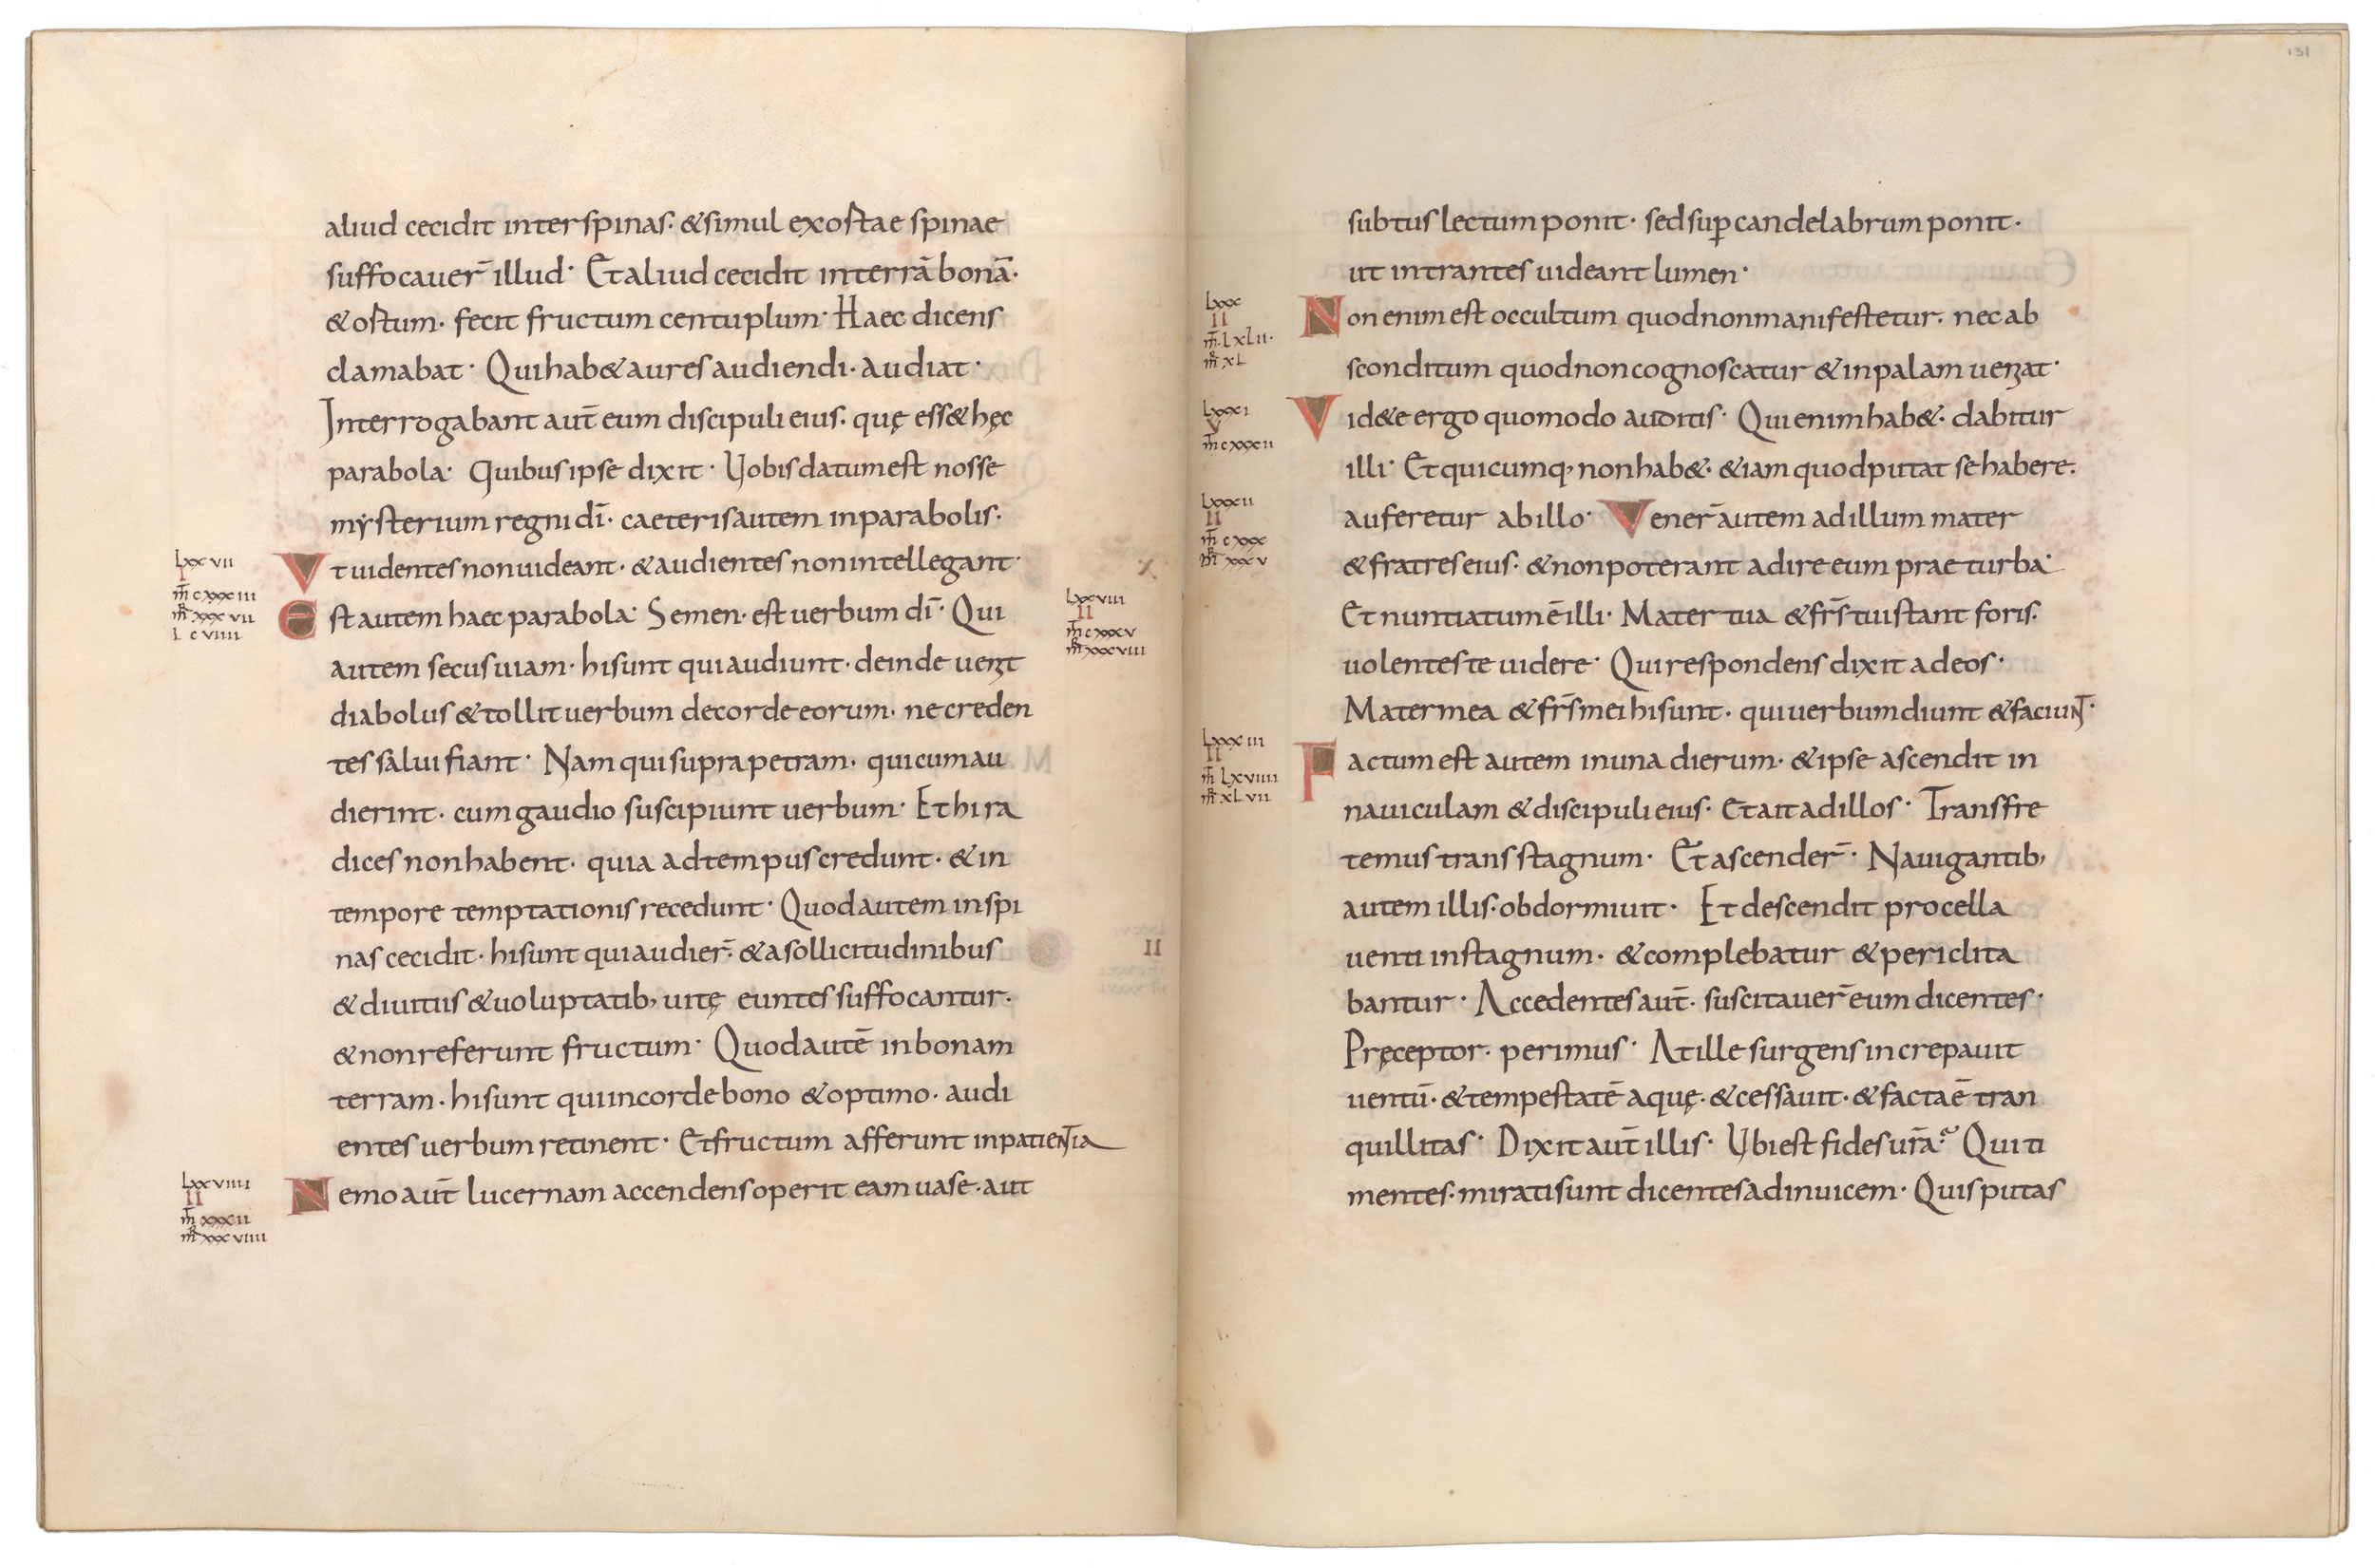 aliud cecidit inter spinas· & simul exortae spinae
suffocauer̄ illud· Et aliud cecidit in terrā bonā·
& ortum· fecit fructum centuplum· Haec dicens
clamabat· Qui hab& aures audiendi· audiat·
Interrogabant aut̄ eum discipuli eius· quę ess& hęc
parabola· Quibus ipse dixit· Uobis datum est nosse
mẏsterium regni dī· caeteris autem in parabolis·
LXXVII
I
m̄ cxxxiii
mR xxxvii
L cviiii
Vt uidentes non uideant· & audientes non intellegant·
Est autem haec parabola· Semen· est uerbum dī· Qui
LXXVIII
II
m̄ cxxxv
mR xxxviii
autem secus uiam· hi sunt qui audiunt· deinde uenit
diabolus & tollit uerbum de corde eorum· ne creden
tes salui fiant· Nam qui supra petram· qui cum au
dierint· cum gaudio suscipiunt uerbum· Et hi ra
dices non habent· quia ad tempus credunt· & in
tempore temptationis recedunt· Quod autem in spi
nas cecidit· hi sunt qui audier̄· & a sollicitudinibus
& diuitiis & uoluptatib; uitę euntes suffocantur·
& non referunt fructum· Quod autē in bonam
terram· hi sunt qui in corde bono & optimo· audi
entes uerbum retinent· Et fructum afferunt in patientia
LXXVIIII
II
m̄ xxxii
mR xxxviiii
Nemo aut̄ lucernam accendens operit eam uase· aut
131
subtus lectum ponit· sed sup̱ candelabrum ponit·
ut intrantes uideant lumen·
LXXX
II
m̄· LXLII·
mR XL
Non enim est occultum quod non manifestetur· nec ab
sconditum quod non cognoscatur & in palam ueniat·
LXXXI
V
m̄ cxxxii
Vid&e ergo quomodo auditis· Qui enim hab&· dabitur
illi· Et quicumq; non hab&· &iam quod putat se habere·
LXXXII
II
m̄ cxxx
mR xxxv
auferetur ab illo· Vener̄ autem ad illum mater
& fratres eius· & non poterant adire eum prae turba·
Et nuntiatum ē illi· Mater tua & fr̄s tui stant foris·
uolentes te uidere· Qui respondens dixit ad eos·
Mater mea & fr̄s mei hi sunt· qui uerbum diunt & faciunt·
LXXXIII
II
m̄ LXVIIII
mR XLVII
Factum est autem in una dierum· & ipse ascendit in
nauiculam & discipuli eius· Et ait ad illos· Transfre
temus trans stagnum· Et ascender̄· Nauigantib;
autem illis· obdormiuit· Et descendit procella
uenti in stagnum· & complebatur & periclita
bantur· Accedentes aut̄· suscitauer̄ eum dicentes·
Pręceptor· perimus· At ille surgens increpauit
uentū· & tempestatē aquę· & cessauit· & facta ē tran
quillitas· Dixit aut̄ illis· Ubi est fides ur̄a? Qui ti
mentes· mirati sunt dicentes ad inuicem· Quis putas